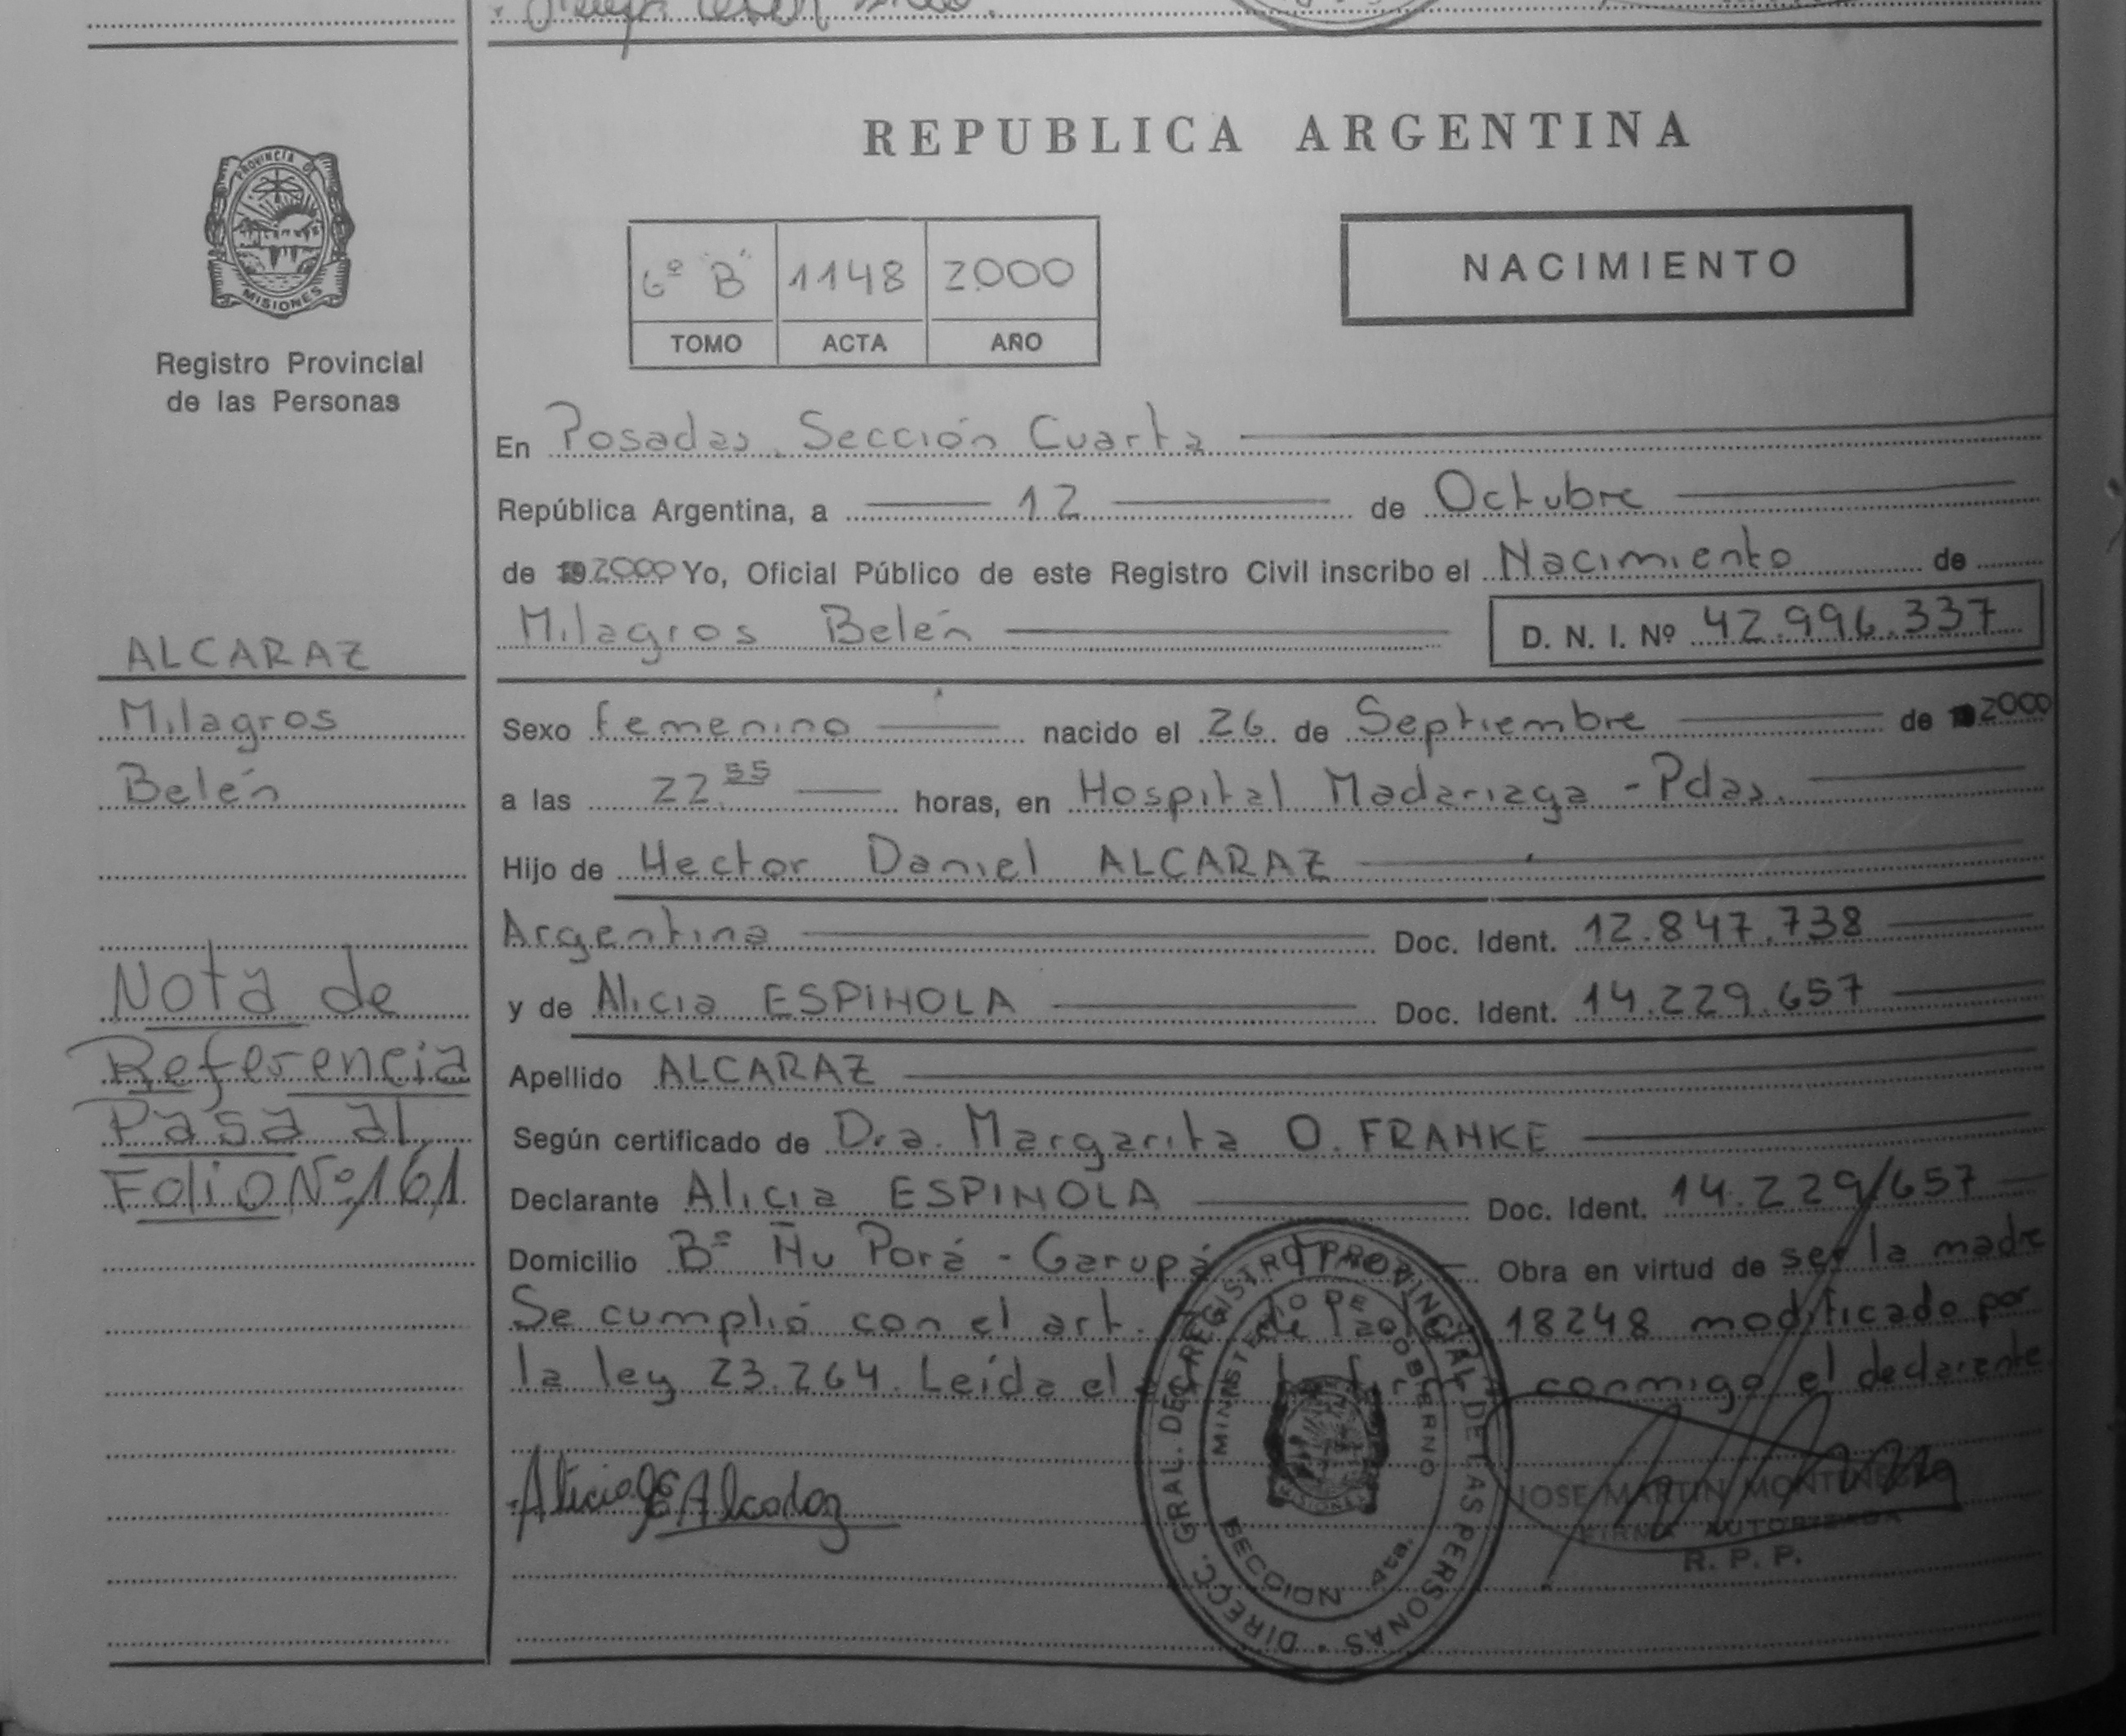 PROVINCIA DE
MISIONES
Registro Provincial
de las Personas
ALCARAZ
Milagros
Belén
Nota de
Referencia
Pasa al
Folio Nº 161
REPUBLICA ARGENTINA
6º "B" 1148 2000
TOMO ACTA AÑO
NACIMIENTO
En Posadas, Sección Cuarta
República Argentina, a 12 de Octubre
de 19 2000 Yo, Oficial Público de este Registro Civil inscribo el Nacimiento de
Milagros Belén D. N. I. Nº 42.996.337
Sexo femenino nacido el 26 de Septiembre de 2000
a las 22.55 horas, en Hospital Madariaga - Pdas.
Hijo de Hector Daniel ALCARAZ
Argentina Doc. Ident. 12.847.738
y de Alicia ESPINOLA Doc. Ident. 14.229.657
Apellido ALCARAZ
Según certificado de Dra. Margarita O. FRANKE
Declarante Alicia ESPINOLA Doc. Ident. 14.229/657
Domicilio Bº Ñu Porá - Garupá Obra en virtud de ser la madre
Se cumplió con el art. de 18248 modificado por
la ley 23.264. Leída el conmigo el declarante
Alicia
JOSE MARTIN
FIRMA AUTORIZADA
R. P. P.
DIRECC. GRAL. DEL REGISTRO PROVINCIAL DE LAS PERSONAS
MINISTERIO DE GOBIERNO
SECCION 4ta.
MISIONES